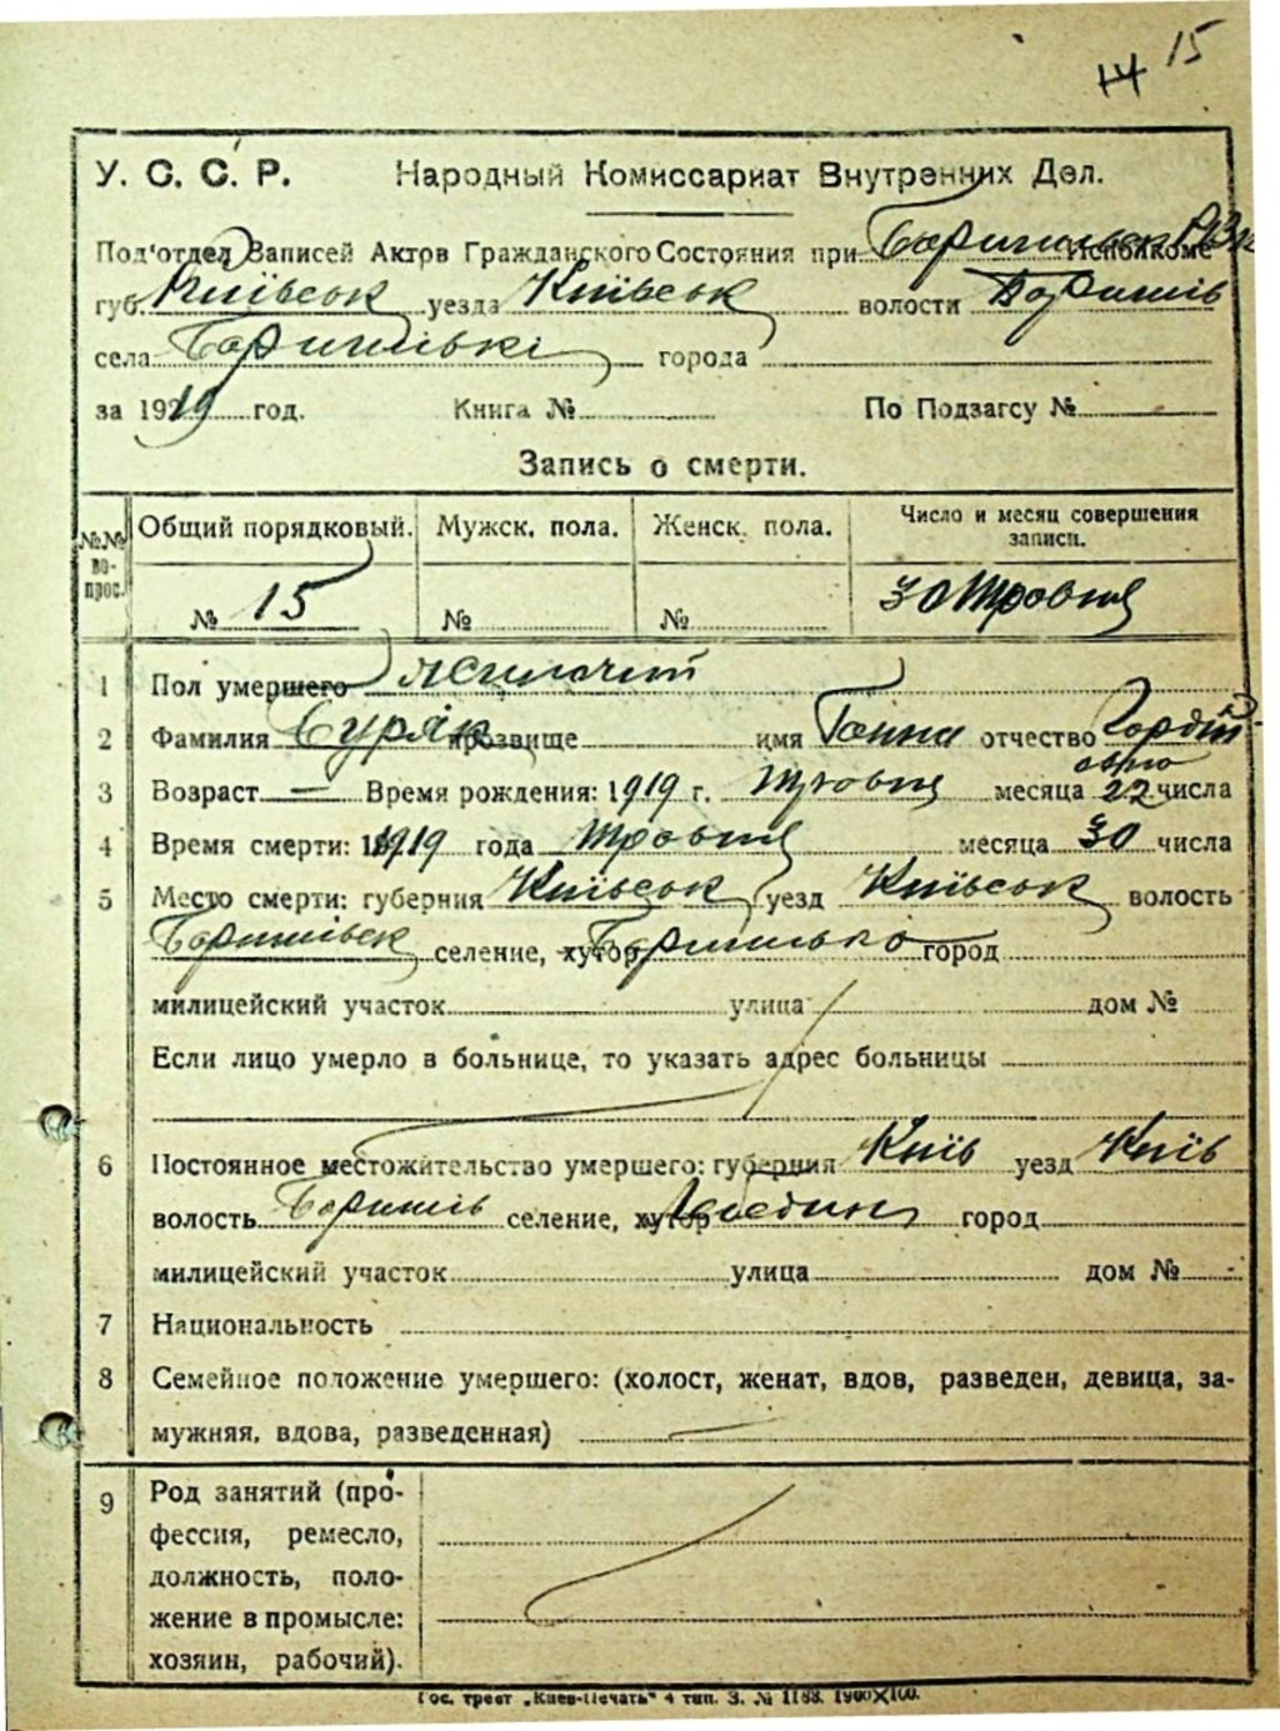 14 15
У. С. С. Р. Народный Комиссариат Внутренних Дел.
Под'отдел Записей Актов Гражданского Состояния при Исполкоме
губ. Київськ уезда Київськ волости Баришів
села Баришівкі города
за 1919 год. Книга № По Подзагсу №
Запись о смерти.
№№ во-прос. Общий порядковый. Мужск. пола. Женск. пола. Число и месяц совершения записи.
№ 15 № № 30 Травня
1 Пол умершего жіночий
2 Фамилия Буряк прозвище имя Ганна отчество Гордій
овна
3 Возраст — Время рождения: 1919 г. травня месяца 22 числа
4 Время смерти: 1919 года травня месяца 30 числа
5 Место смерти: губерния Київськ уезд Київськ волость
Баришівск селение, хутор Баришівка город
милицейский участок улица дом №
Если лицо умерло в больнице, то указать адрес больницы
6 Постоянное местожительство умершего: губерния Київ уезд Київ
волость Баришів селение, хутор Лебедин город
милицейский участок улица дом №
7 Национальность
8 Семейное положение умершего: (холост, женат, вдов, разведен, девица, за-
мужняя, вдова, разведенная)
9 Род занятий (про-
фессия, ремесло,
должность, поло-
жение в промысле:
хозяин, рабочий).
Гос. трест „Киев-Печать" 4 тип. З. № 1188. 1900×100.